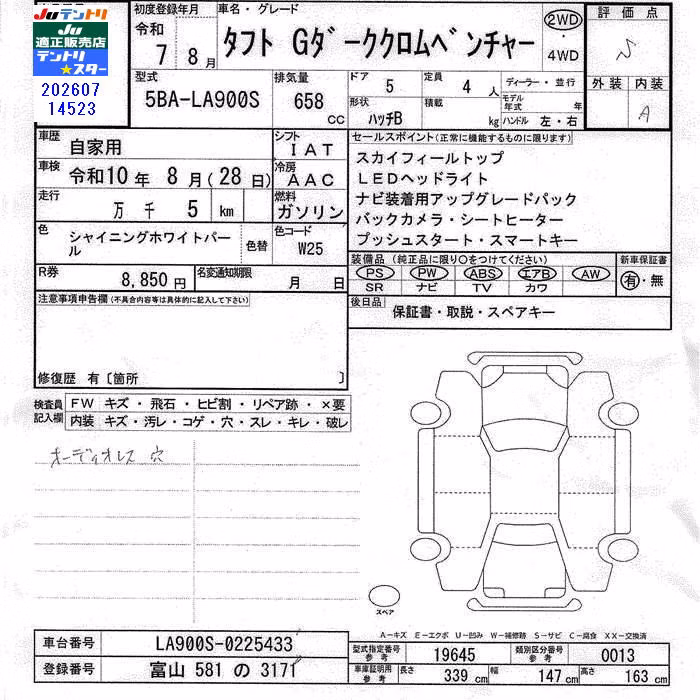 JUテントリ
JU
適正販売店
テントリ
★スター
202607
14523
初度登録年月
令和
7年8月
車名・グレード
タフト Gダーククロムベンチャー
2WD
・
4WD
評価点
S
外装 内装
A
型式
5BA-LA900S
排気量
658 CC
ドア
5
定員
4人
形状
ハッチB
積載
kg
ディーラー・並行
モデル年式 年
ハンドル 左・右
車歴
自家用
シフト
IAT
車検
令和10年 8月(28日)
冷房
AAC
走行
万 千 5 km
燃料
ガソリン
色
シャイニングホワイトパール
色替
色コード
W25
R券
8,850円
名変通知期限
月 日
セールスポイント(正常に機能するものに限ります)
スカイフィールトップ
LEDヘッドライト
ナビ装着用アップグレードパック
バックカメラ・シートヒーター
プッシュスタート・スマートキー
装備品(純正品に限り○をつけてください)
PS PW ABS エアB AW
SR ナビ TV カワ
新車保証書
有・無
後日品
保証書・取説・スペアキー
注意事項申告欄(不具合内容等は具体的に記入して下さい)
修復歴 有〔箇所 〕
検査員記入欄
FW キズ・飛石・ヒビ割・リペア跡・×要
内装 キズ・汚レ・コゲ・穴・スレ・キレ・破レ
オーディオレス 穴
スペア
A-キズ E-エクボ U-凹み W-補修跡 S-サビ C-腐食 XX-交換済
車台番号
LA900S-0225433
登録番号
富山 581 の 3171
型式指定番号 参考
19645
類別区分番号 参考
0013
車庫証明用 参考
長さ 339 cm
幅 147 cm
高さ 163 cm